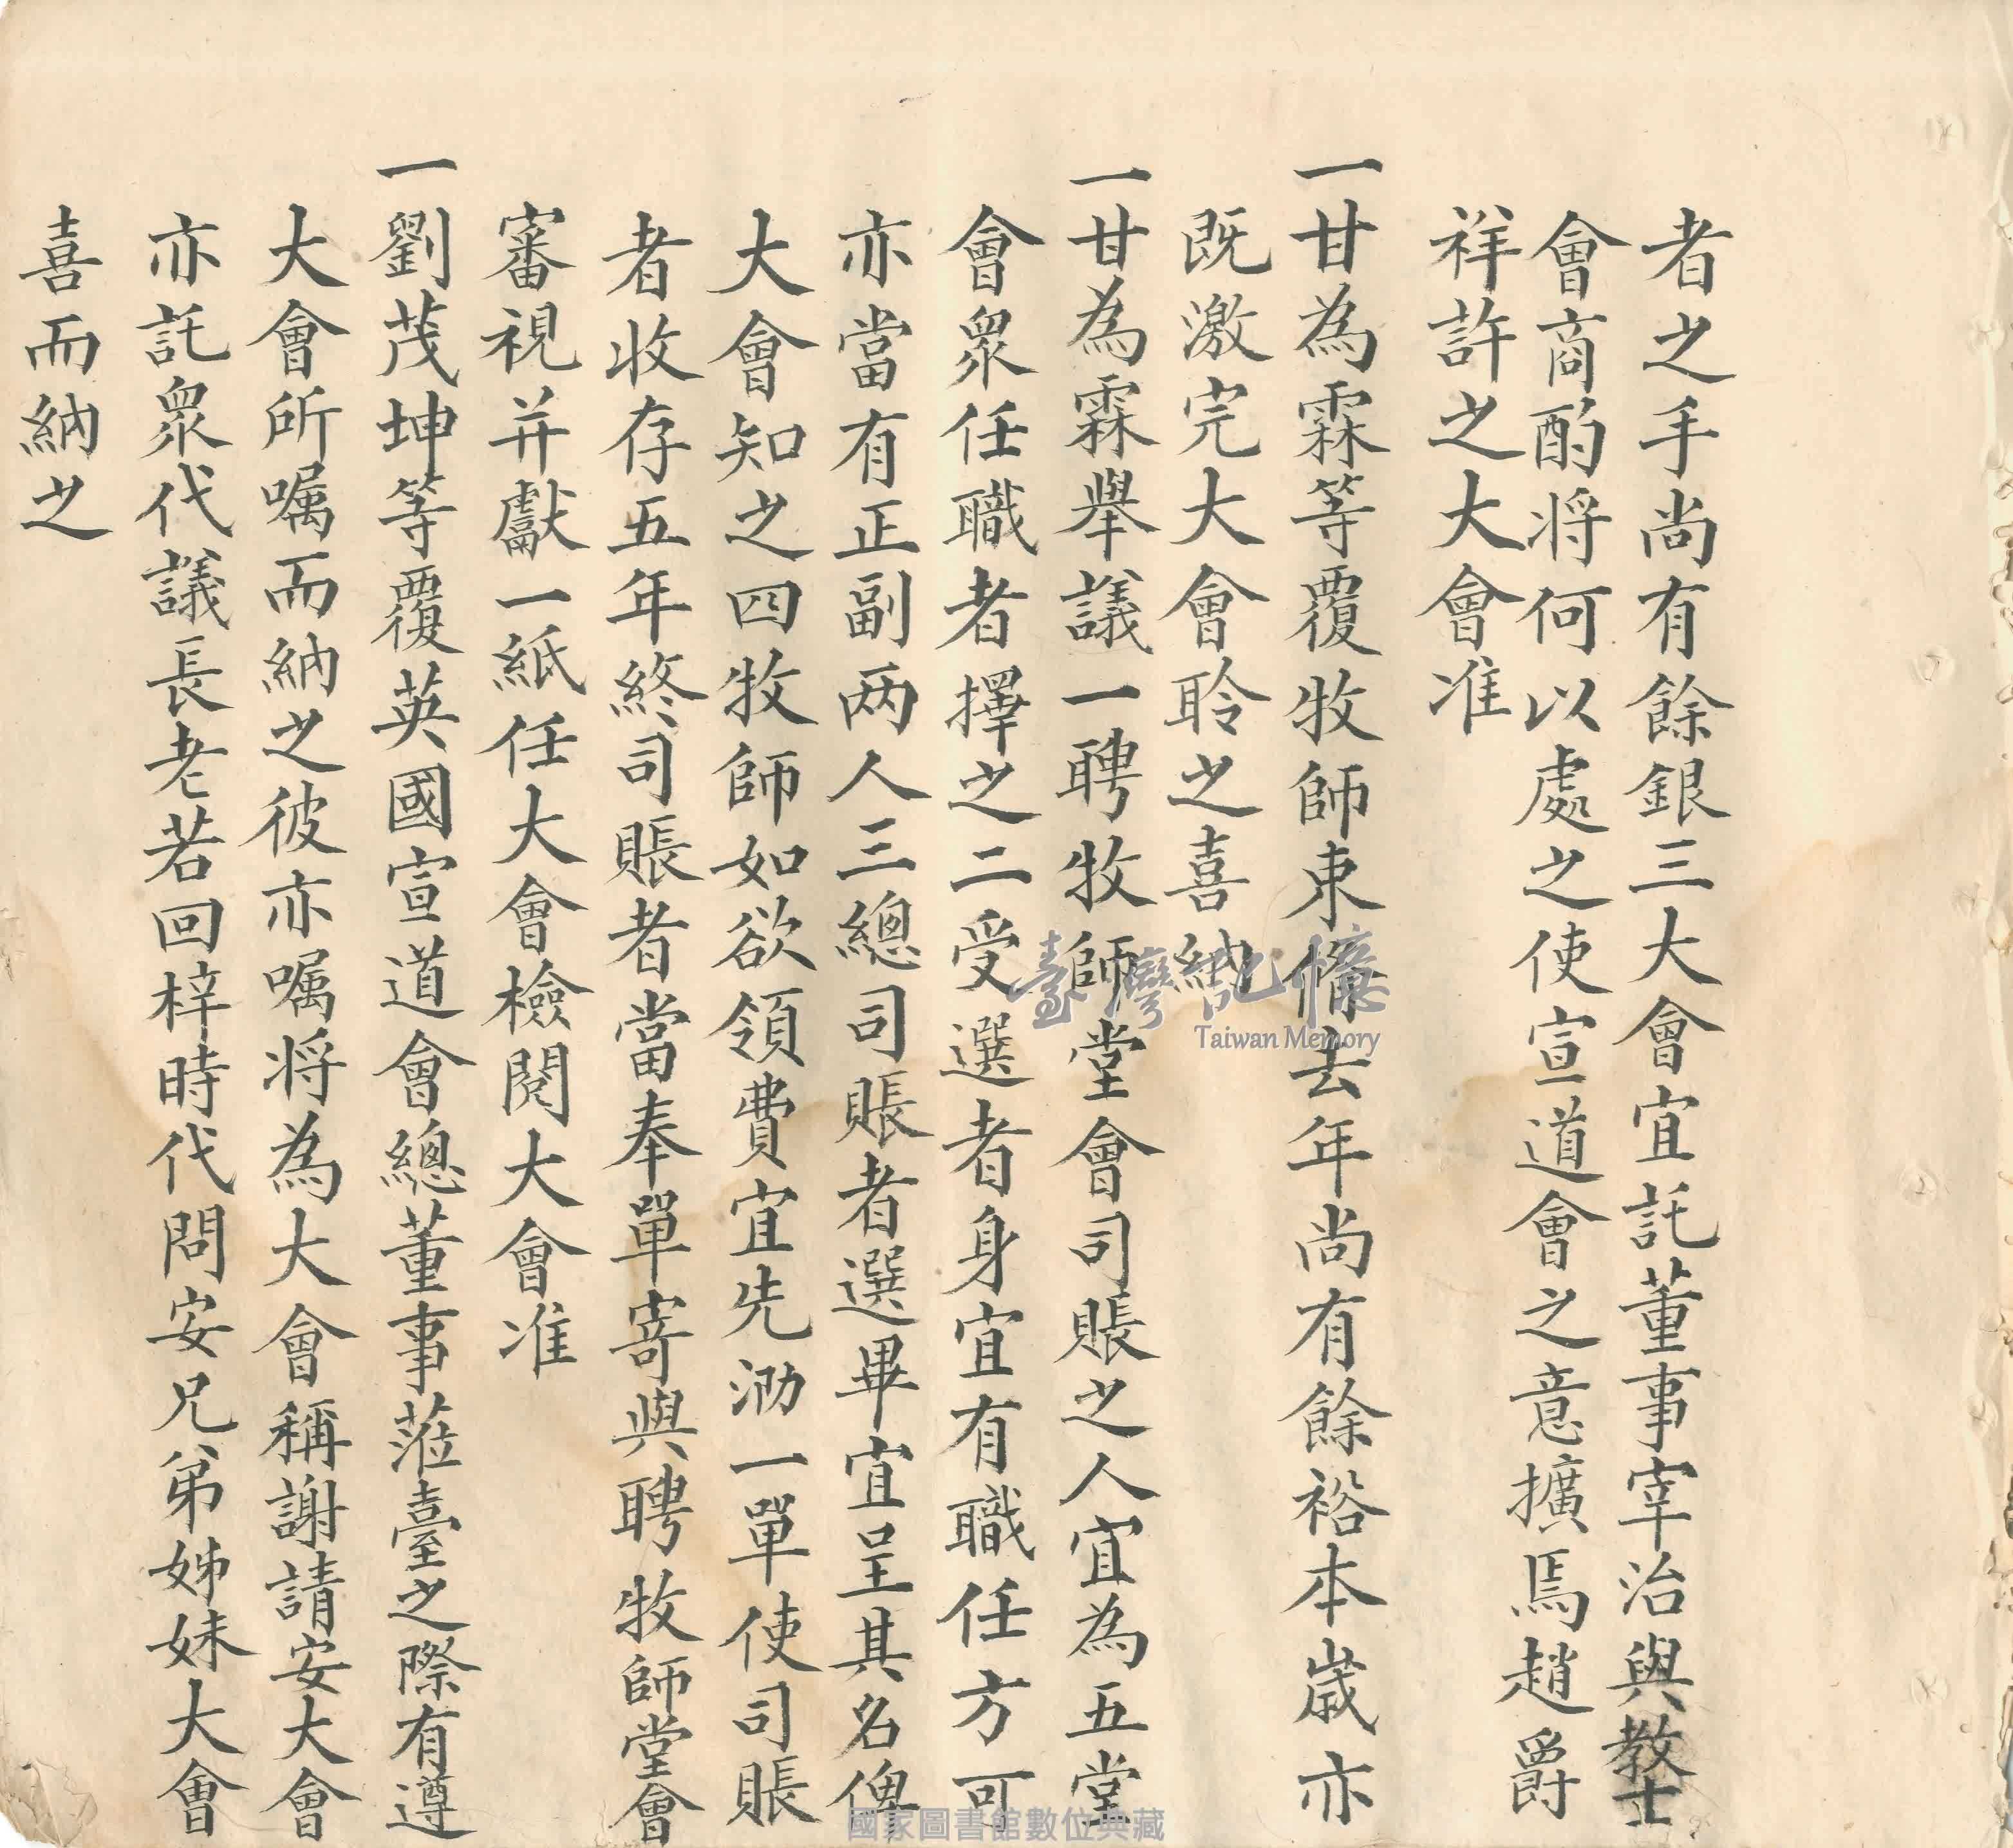 者之手尚有餘銀三大會宜託董事宰治與教士
會商酌将何以處之使宣道會之意擴焉趙爵
祥許之大會准
一甘為霖等覆牧師束脩去年尚有餘裕本歲亦
既激完大會聆之喜納
一甘為霖舉議一聘牧師堂會司賬之人宜為五堂
會眾任職者擇之二受選者身宜有職任方可
亦當有正副两人三總司賬者選畢宜呈其名俾
大會知之四牧師如欲領費宜先泐一單使司賬
者收存五年終司賬者當奉單寄與聘牧師堂會
審視并獻一紙任大會檢閱大會准
一劉茂坤等覆英國宣道會總董事蒞臺之際有遵
大會所嘱而納之彼亦嘱将為大會稱謝請安大會
亦託眾代議長老若回梓時代問安兄弟姊妹大會
喜而納之
臺灣記憶
Taiwan Memory
國家圖書館數位典藏